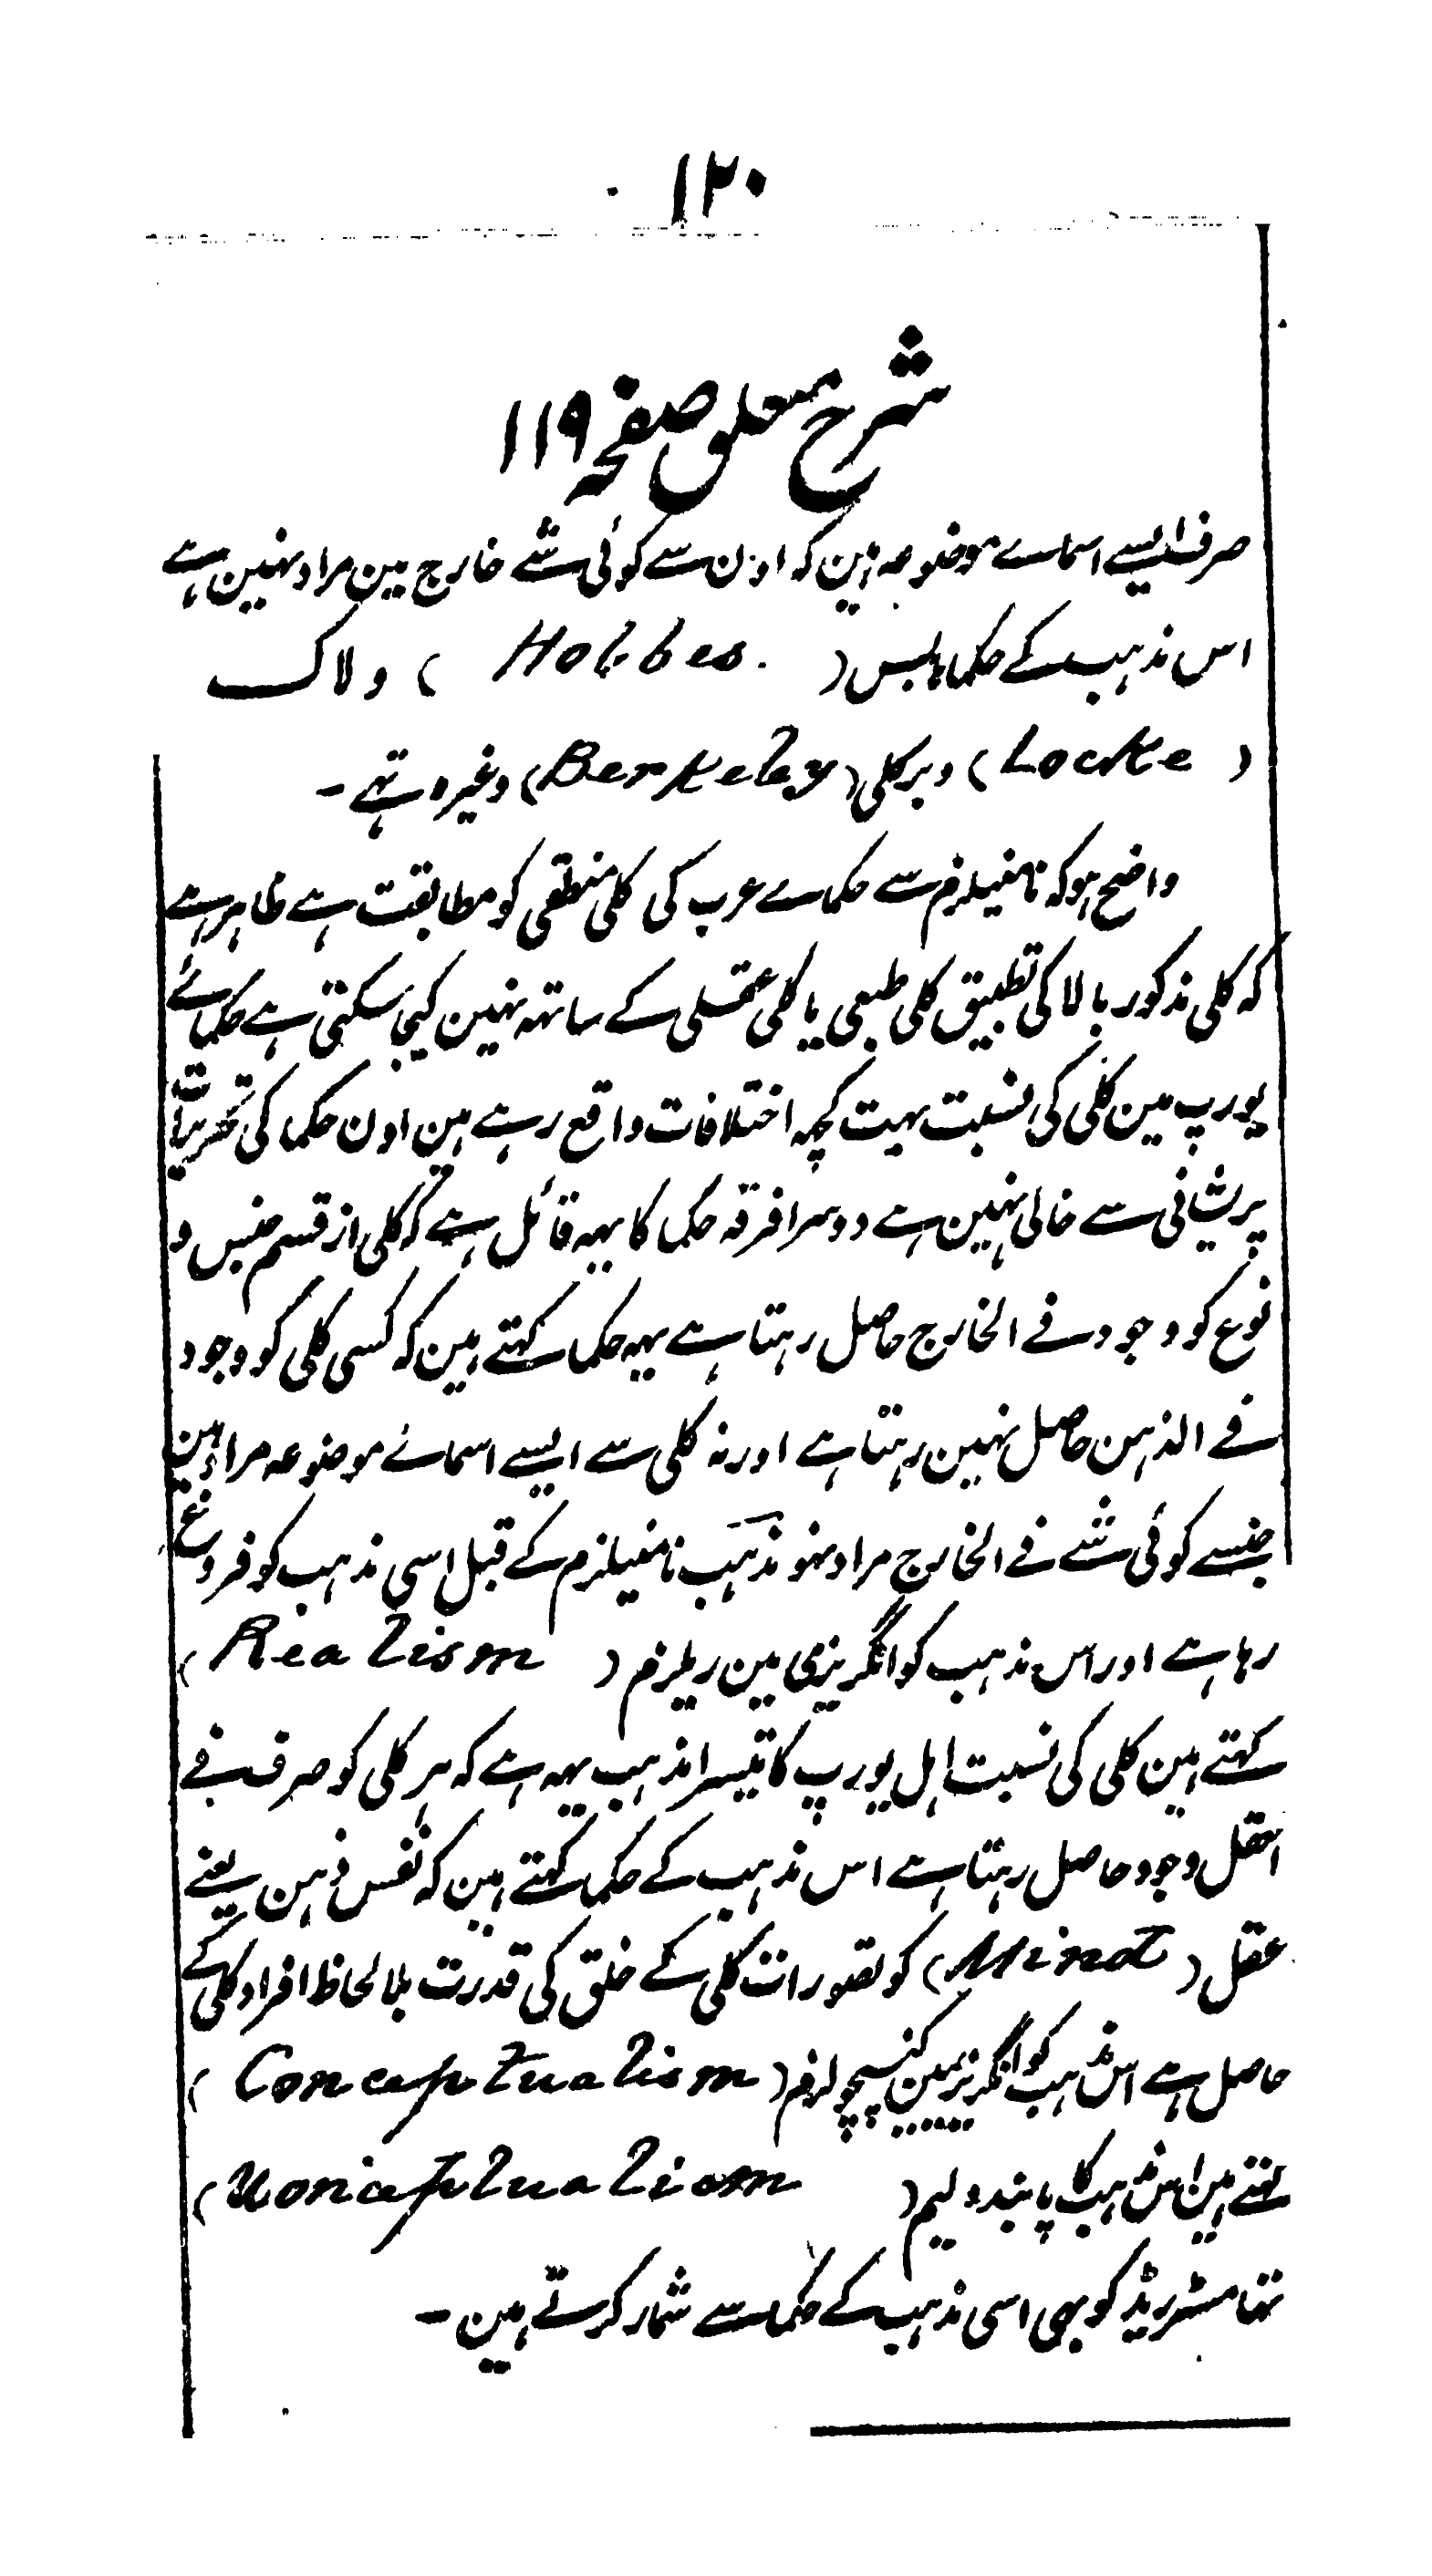 ۱۲۰
شرح متعلق صفحہ ۱۱۹
صرف ایسے اسماے موضوعہ ہین کہ اون سے کوئی شے خارج مین مراد نہین ہے
اس مذہب کے حکما ہابس ( Hobbes. ) و لاک
( Locke ) و برکلی ( Berkeley ) وغیرہ تہے ۔
واضح ہو کہ نامنیلزم سے حکماے عرب کی کلی منطقی کو مطابقت ہے ظاہر ہے
کہ کلی مذکور بالا کی تطبیق کلی طبعی یا کلی عقلی کے ساتہہ نہین کیجا سکتی ہے حکمائے
یورپ مین کلی کی نسبت بہت کچہہ اختلافات واقع رہے ہین اون حکما کی تحریرات
پریشانی سے خالی نہین ہے دوسرا فرقہ حکما کا یہہ قائل ہے کہ کلی از قسم جنس و
نوع کو وجود فے الخارج حاصل رہتا ہے یہہ حکما کہتے ہین کہ کسی کلی کو وجود
فے الذہن حاصل نہین رہتا ہے اور نہ کلی سے ایسے اسمائے موضوعہ مراد ہین
جنسے کوئی شے فے الخارج مراد نہو مذہب نامنیلزم کے قبل اسی مذہب کو فروغ
رہا ہے اور اس مذہب کو انگریزی مین ریلزم ( Realism )
کہتے ہین کلی کی نسبت اہل یورپ کا تیسرا مذہب یہہ ہے کہ ہر کلی کو صرف فے
العقل وجود حاصل رہتا ہے اس مذہب کے حکما کہتے ہین کہ نفس ذہن یعنے
عقل ( Mind ) کو تصورات کلی کے خلق کی قدرت بلا لحاظ افراد کلی کے
حاصل ہے اس مذہب کو انگریزی مین کنسپچولزم ( Conceptualism )
کہتے ہین اس مذہب کا پابند ولیم ( Uonceptualism )
تہا مسٹر ریڈ کو بہی اسی مذہب کے حکما سے شمار کرتے ہین ۔